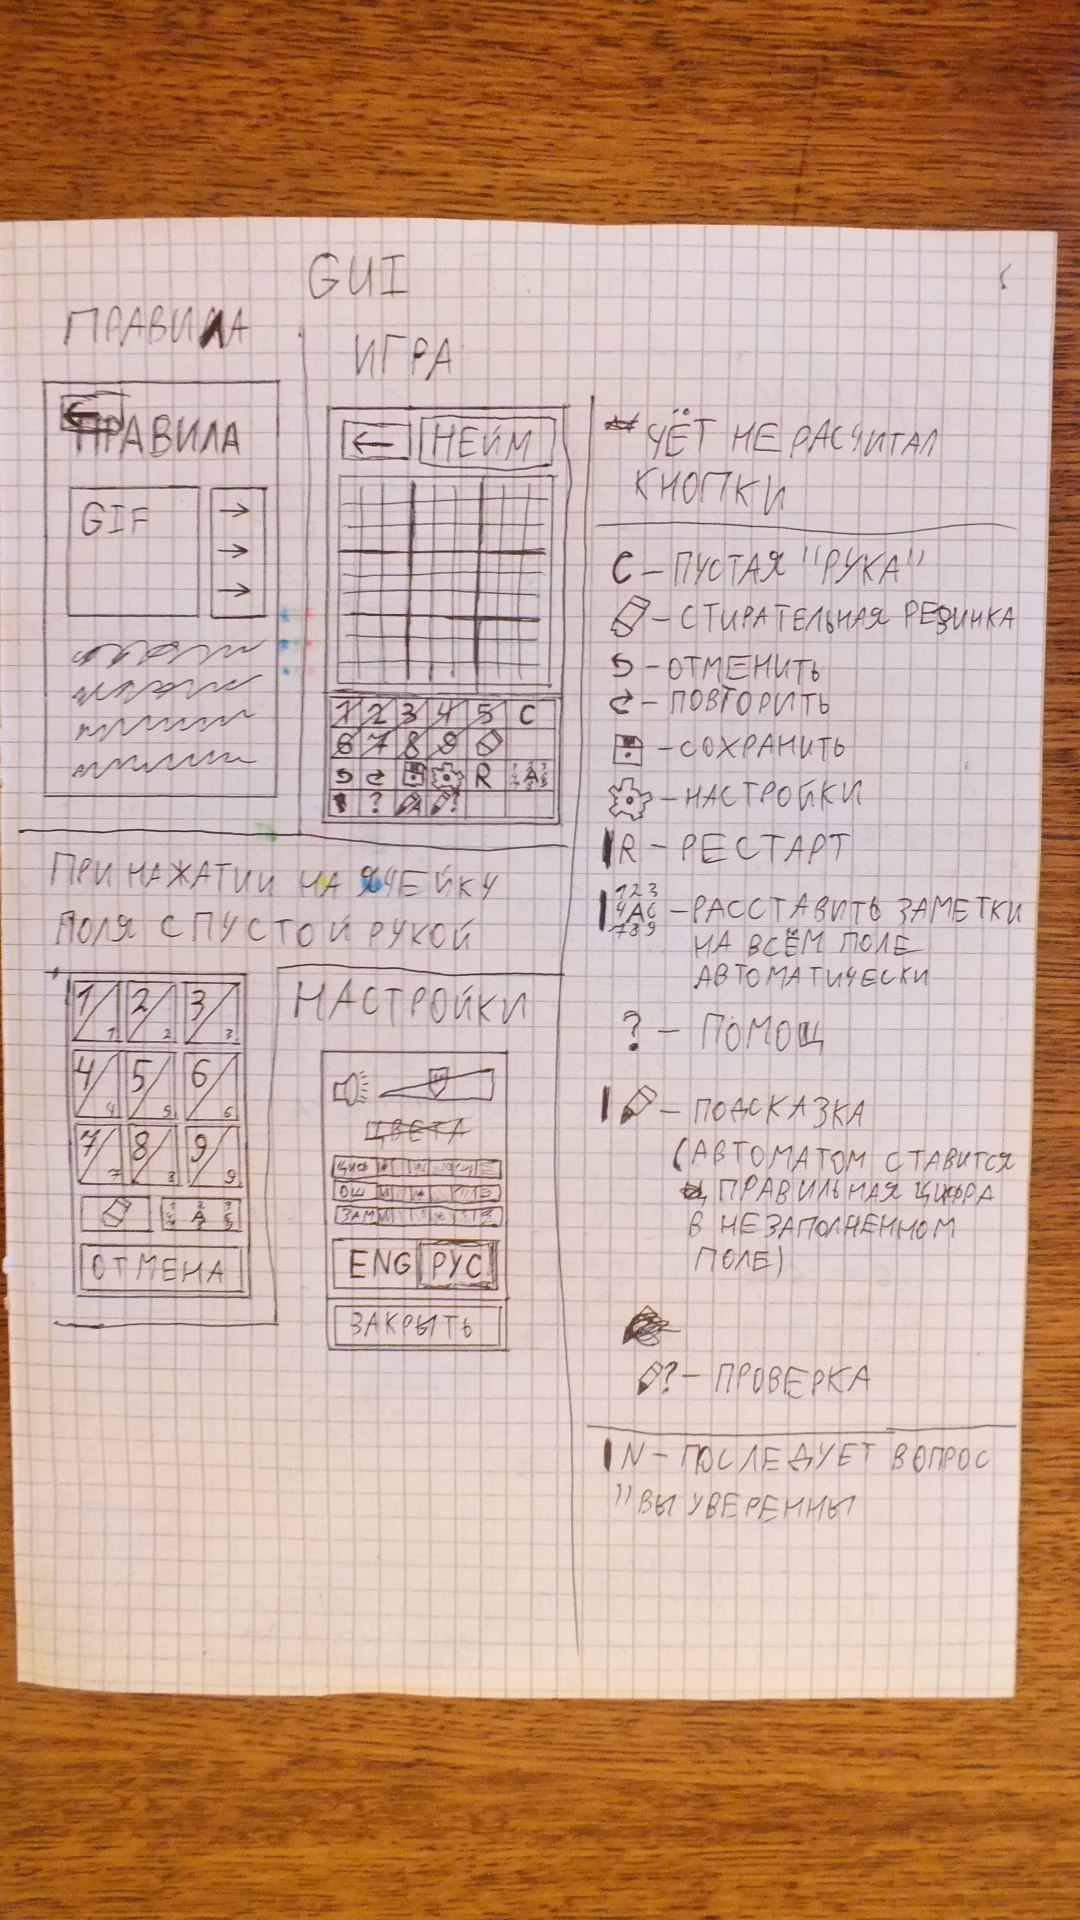 GUI
ПРАВИЛА
ПРАВИЛА
GIF
ИГРА
НЕЙМ
1 2 3 4 5 C
6 7 8 9
R А
?
А ?
ПРИ НАЖАТИИ НА ЯЧЕЙКУ
ПОЛЯ С ПУСТОЙ РУКОЙ
1 1 2 2 3 3
4 4 5 5 6 6
7 7 8 8 9 9
А
ОТМЕНА
НАСТРОЙКИ
ЦВЕТА
ЦИФ
ОШ
ЗАМ
ENG РУС
ЗАКРЫТЬ
ЧЁТ НЕ РАСЧИТАЛ
КНОПКИ
С – ПУСТАЯ "РУКА"
– СТИРАТЕЛЬНАЯ РЕЗИНКА
– ОТМЕНИТЬ
– ПОВТОРИТЬ
– СОХРАНИТЬ
– НАСТРОЙКИ
R – РЕСТАРТ
1 2 3
4 А 6 – РАССТАВИТЬ ЗАМЕТКИ
7 8 9
НА ВСЁМ ПОЛЕ
АВТОМАТИЧЕСКИ
? – ПОМОЩ
– ПОДСКАЗКА
(АВТОМАТОМ СТАВИТСЯ
ПРАВИЛЬНАЯ ЦИФРА
В НЕЗАПОЛНЕННОМ
ПОЛЕ)
? – ПРОВЕРКА
N – ПОСЛЕДУЕТ ВОПРОС
"ВЫ УВЕРЕННЫ